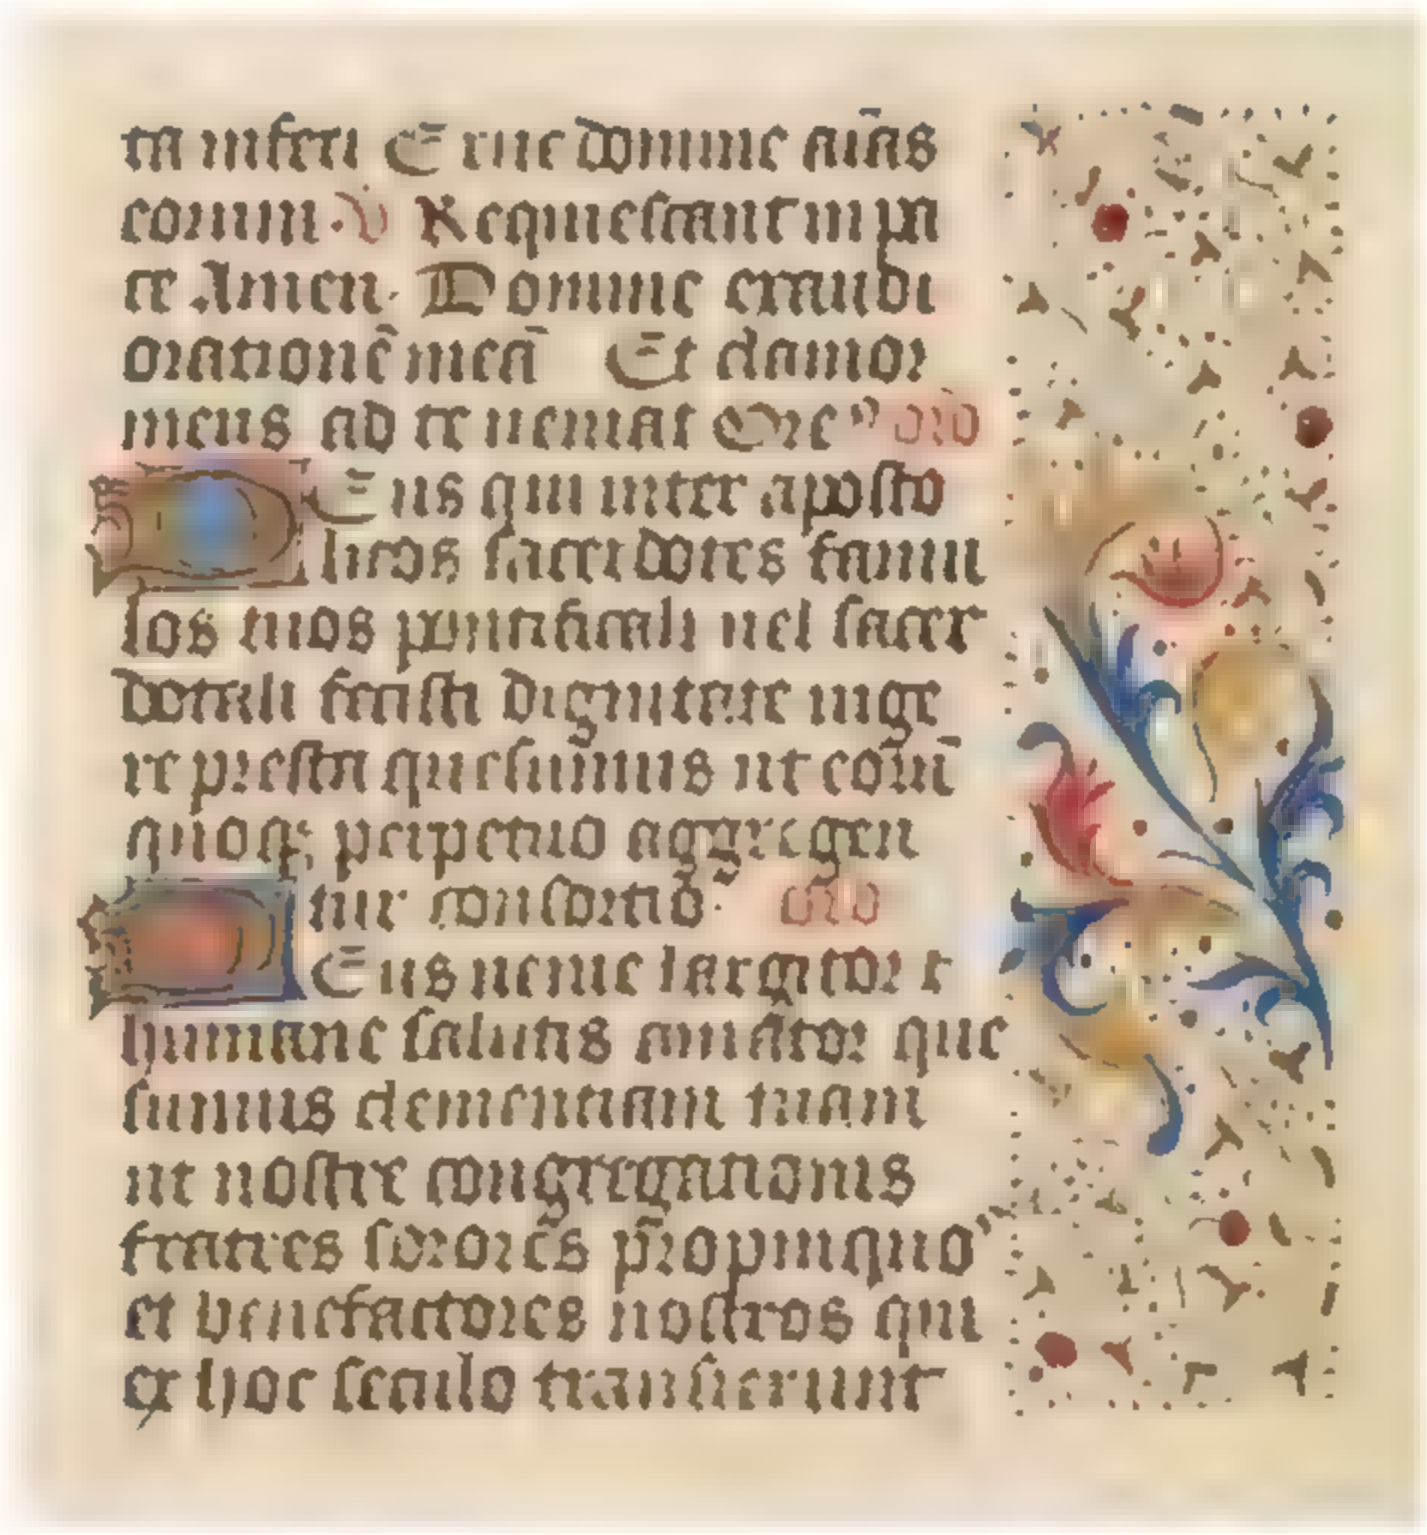 ta inferi Erue domine aīas
eorum. V Requiescant in pa
ce Amen. Domine exaudi
orationē meā Et clamor
meus ad te ueniat Ore'' oro
Deus qui inter aposto
licos sacerdotes famu
los tuos pontificali uel sacer
dotali fecisti dignitate uige
re presta quesumus ut eoȓu
quoqȝ perpetuo aggregen
tur consortio. oro
Deus uenie largitor et
humane salutis amator que
sumus clementiam tuam
ut nostre congregationis
fratres sorores propinquo'
et benefactores nostros qui
ex hoc seculo transierunt